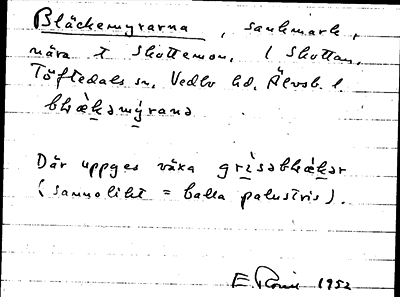 Bläckemyrarna, sankmark,
nära t Skottemon, l Skottan,
Töftedals sn, Vedbo hd, Älvsb. l.
blæ̀kəmýrana
Där uppges växa grìsəblækər
(sannolikt = calla palustris).
E. 1952